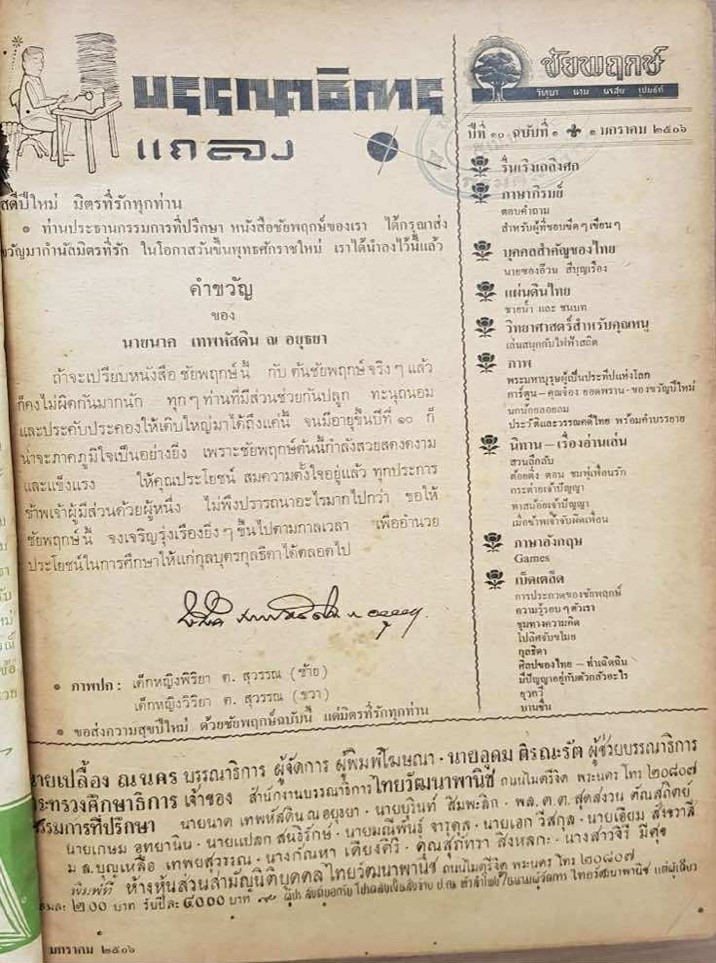 บรรณาธิการ
แถลง
สดีปีใหม่ มิตรที่รักทุกท่าน
• ท่านประธานกรรมการที่ปรึกษา หนังสือชัยพฤกษ์ของเรา ได้กรุณาส่ง
ขวัญมากำนัลมิตรที่รัก ในโอกาสวันขึ้นพุทธศักราชใหม่ เราได้นำลงไว้นี้แล้ว
คำขวัญ
ของ
นายนาค เทพหัสดิน ณ อยุธยา
ถ้าจะเปรียบหนังสือ ชัยพฤกษ์นี้ กับ ต้นชัยพฤกษ์จริง ๆ แล้ว
ก็คงไม่ผิดกันมากนัก ทุก ๆ ท่านที่มีส่วนช่วยกันปลูก ทะนุถนอม
และประคับประคองให้เติบใหญ่มาได้ถึงแค่นี้ จนมีอายุขึ้นปีที่ ๑๐ ก็
น่าจะภาคภูมิใจเป็นอย่างยิ่ง เพราะชัยพฤกษ์ต้นนี้กำลังสวยสดงดงาม
และแข็งแรง ให้คุณประโยชน์ สมความตั้งใจอยู่แล้ว ทุกประการ
ข้าพเจ้าผู้มีส่วนด้วยผู้หนึ่ง ไม่พึงปรารถนาอะไรมากไปกว่า ขอให้
ชัยพฤกษ์นี้ จงเจริญรุ่งเรืองยิ่ง ๆ ขึ้นไปตามกาลเวลา เพื่ออำนวย
ประโยชน์ในการศึกษาให้แก่กุลบุตรกุลธิดาได้ตลอดไป
• ภาพปก : เด็กหญิงพิริยา ต. สุวรรณ (ซ้าย)
เด็กหญิงวิริยา ต. สุวรรณ (ขวา)
• ขอส่งความสุขปีใหม่ ด้วยชัยพฤกษ์ฉบับนี้ แด่มิตรที่รักทุกท่าน
ชัยพฤกษ์
วิชฺชา นาม นรสฺส รูปมธํก
ปีที่ ๑๐ ฉบับที่ ๑ ๑ มกราคม ๒๕๐๖
รื่นเริงเถลิงศก
ภาษาภิรมย์
ตอบคำถาม
สำหรับผู้ที่ชอบขีด ๆ เขียน ๆ
บุคคลสำคัญของไทย
นายซองอ๊วน สีบุญเรือง
แผ่นดินไทย
ชายน้ำ และ ชนบท
วิทยาศาสตร์สำหรับคุณหนู
เล่นสนุกกับไฟฟ้าสถิต
ภาพ
พระมหาบุรุษผู้เป็นประทีปแห่งโลก
การ์ตูน – คุณจ๋อง ยอดพราน – ของขวัญปีใหม่
นกน้อยลอยลม
ประวัติและวรรณคดีไทย พร้อมคำบรรยาย
นิทาน – เรื่องอ่านเล่น
สวนลึกลับ
ต้อยติ่ง ตอน ชมพู่เพื่อนรัก
กระต่ายเจ้าปัญญา
ทาสน้อยเจ้าปัญญา
เมื่อข้าพเจ้าจับผิดเพื่อน
ภาษาอังกฤษ
Games
เบ็ดเตล็ด
การประกวดของชัยพฤกษ์
ความรู้รอบ ๆ ตัวเรา
ชุมทางความคิด
ไปลิศจับขโมย
กุลธิดา
ศิลปของไทย – ท่าเฉิดฉิน
มีปัญญาอยู่กับตัวกลัวอะไร
ยุวกวี
นานชื่น
นายเปลื้อง ณ นคร บรรณาธิการ ผู้จัดการ ผู้พิมพ์โฆษณา · นายอุดม ติรณะรัต ผู้ช่วยบรรณาธิการ
กระทรวงศึกษาธิการ เจ้าของ สำนักงานบรรณาธิการ ไทยวัฒนาพานิช ถนนไมตรีจิต พระนคร โทร ๒๐๘๐๗
กรรมการที่ปรึกษา นายนาค เทพหัสดิน ณ อยุธยา · นายบุรินท์ สิมพะลิก · พล. ต. ต. สุดสงวน ตัณสถิตย์
นายเกษม อุทยานิน · นายแปลก สนธิรักษ์ · นายมณีพันธุ์ จารุดุล · นายเอก วีสกุล · นายเอี่ยม สังขวาสี
ม ล. บุญเหลือ เทพยสุวรรณ · นางกัณหา เคียงศิริ · คุณสุภัทรา สิงหลกะ · นางสาวจิรี มีศุข
พิมพ์ที่ ห้างหุ้นส่วนสามัญนิติบุคคล ไทยวัฒนาพานิช ถนนไมตรีจิต พระนคร โทร ๒๐๘๐๗
๒.๐๐ บาท รับปีละ ๔๐.๐๐ บาท
มกราคม ๒๕๐๖